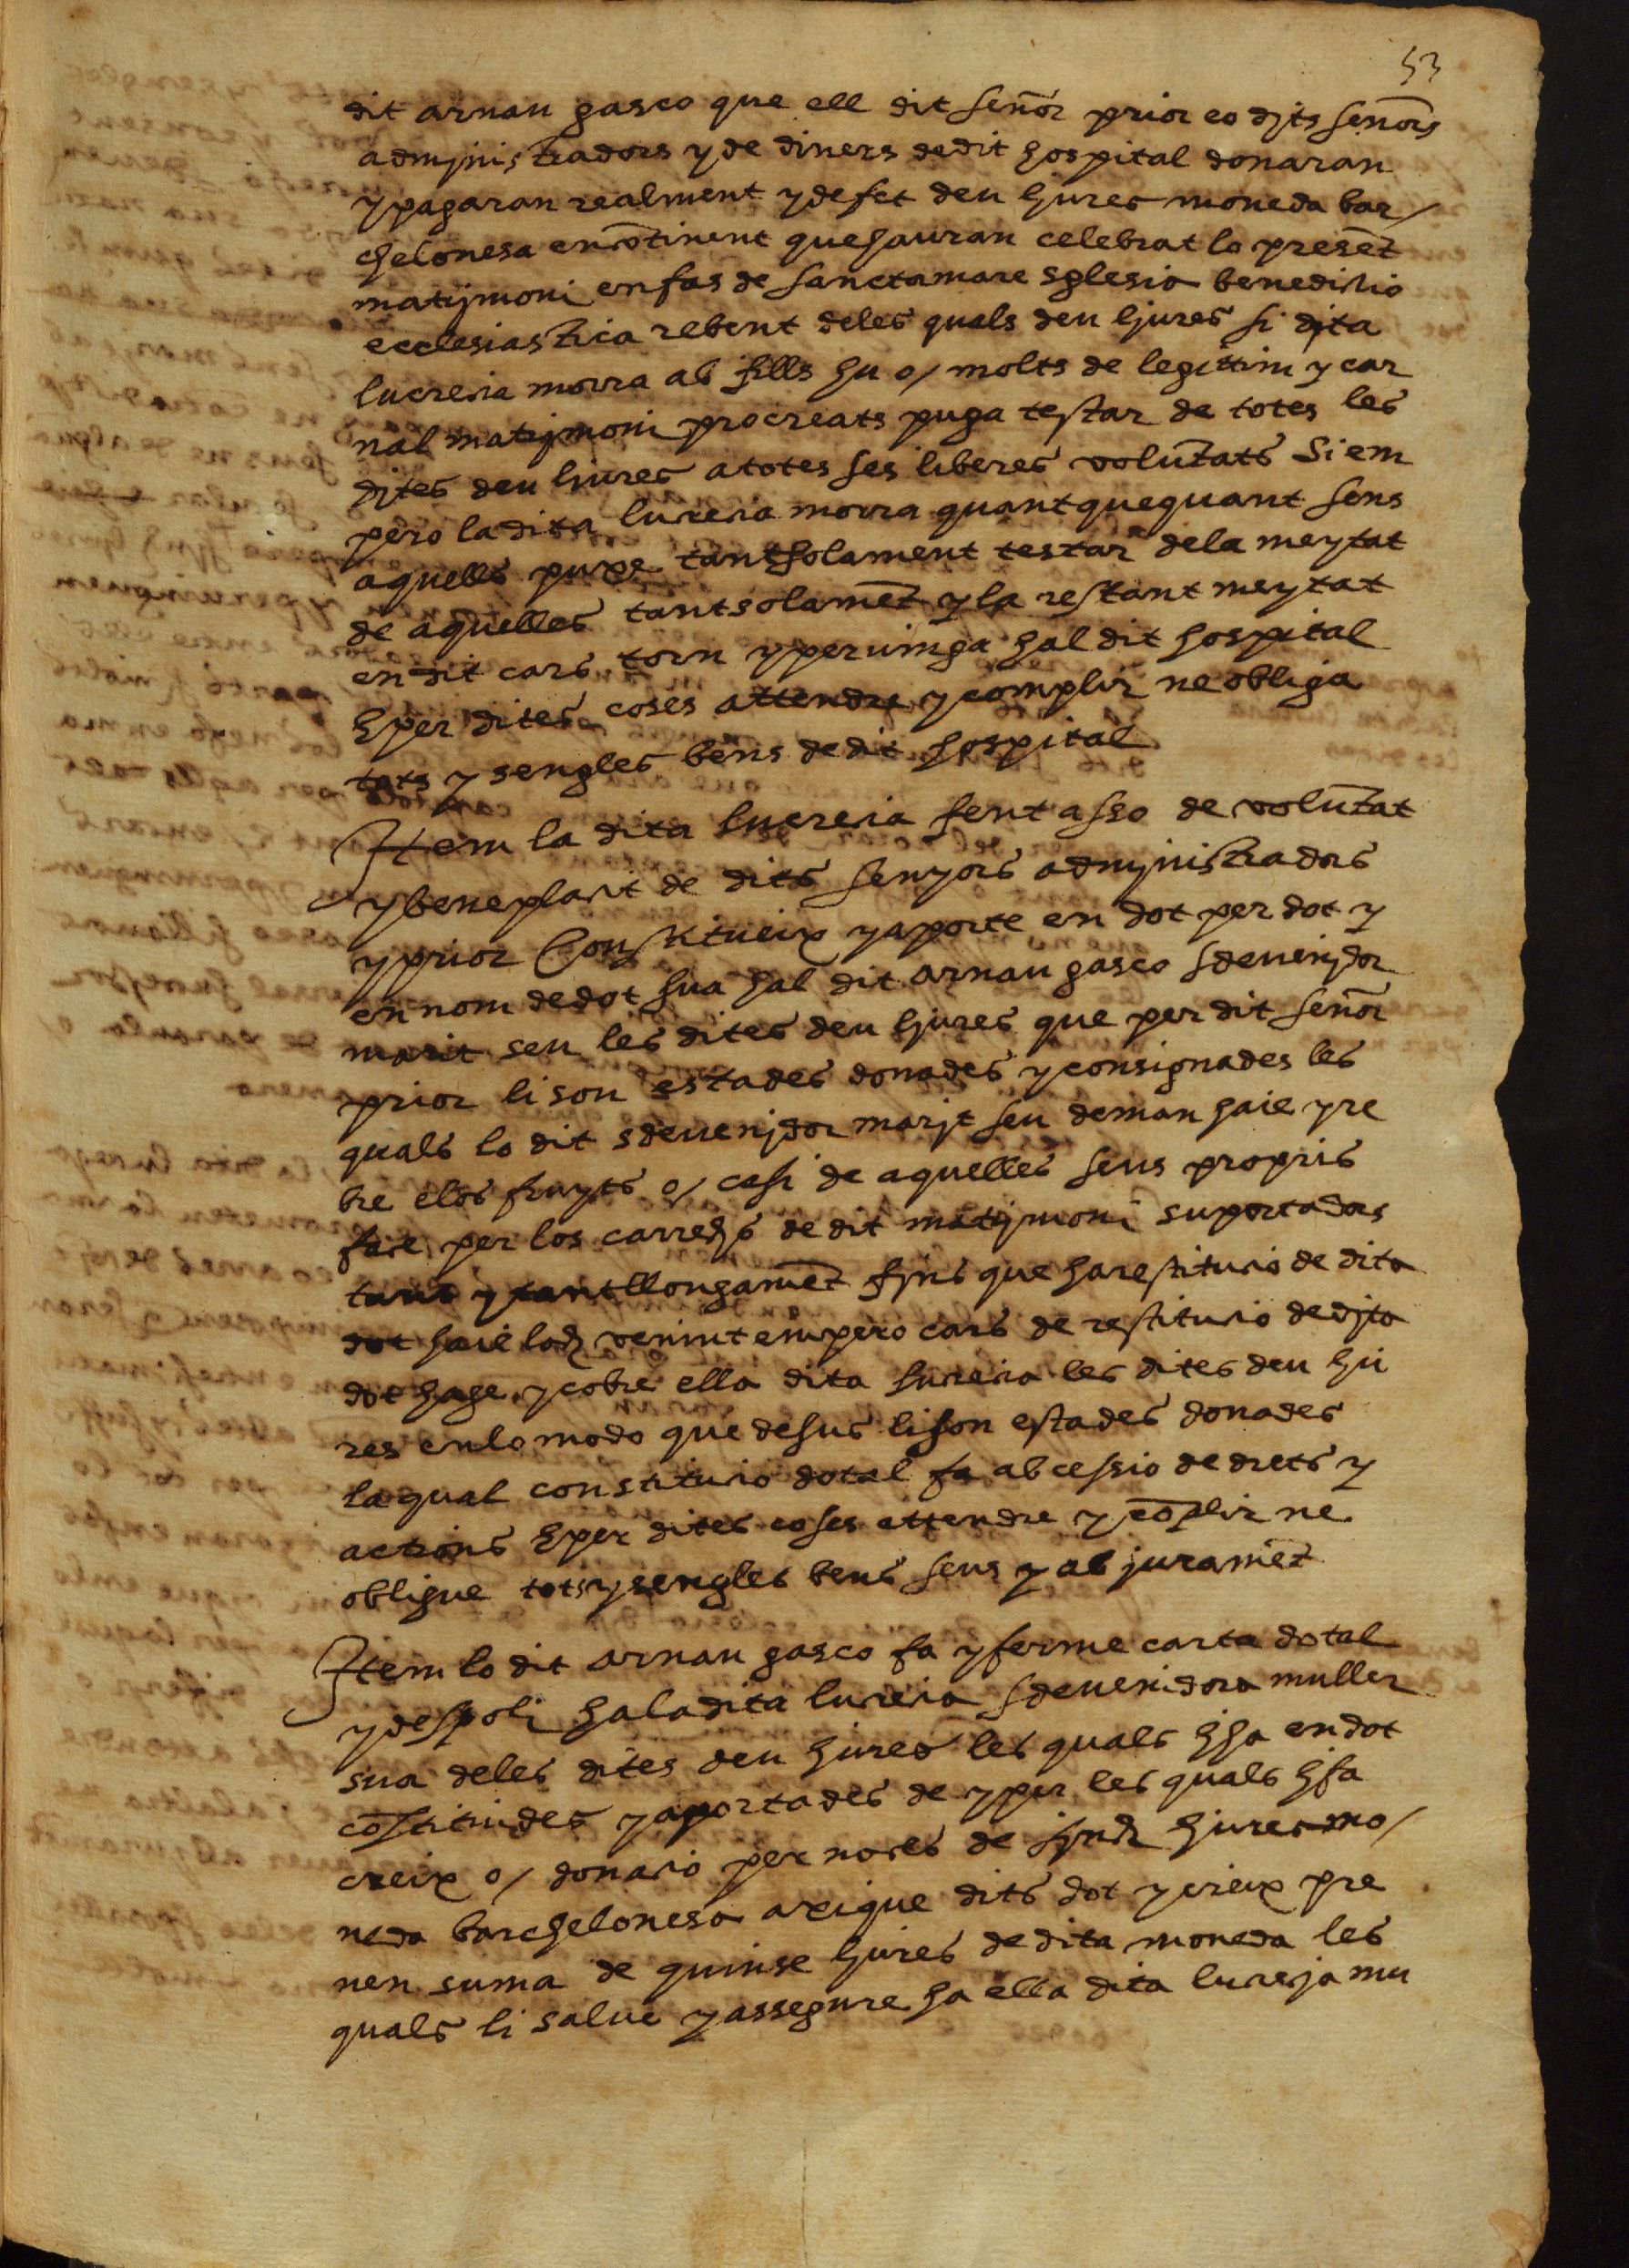 53
dit arnau gasco que ell dit señor prior eo djts señors
admjnistradors y de diners de dit hospital donaran
y pagaran realment y de fet deu ljures moneda bar/
chelonesa encōtinent que hauran celebrat lo presēt
matrjmoni en fas de sancta mare sglesia benedictio
ecclesiastica rebent deles quals deu ljures si djta
lucrecia morra ab fills hu o/ molts de legittim y car
nal matrjmoni procreats puga testar de totes les
djtes deu ljures a totes ses liberes volūtats Si em
pero la dita lucrecia morra quant que quant sens
aquells puxe tant solament testar dela meytat
de aquelles tant solamēt y la restant meytat
en dit cars torn y pervinga hal dit hospital
E per dites coses attendre y complir ne obliga
tots y sengles bens de dit hospital
Item la dita lucrecia fent asso de volūtat
y beneplacit de dits senyors admjnistradors
y prior Constitueix y aporte en dot per dot y
en nom de dot sua hal dit arnau gasco sdevenjdor
marit seu les dites deu ljures que per dit señor
prior li son estades donades y consignades les
quals lo dit sdevenjdor marjt seu deman haie y re
be e los fruyts o/ casi de aquelles seus propris
face per los carrechs de dit matrjmoni suportadors
tant y tant llongamēt fjns que ha restitucio de dita
dot haie loch venint empero cars de restitucio de djta
dot hage y cobre ella dita lucrecia les dites deu lju
res en lo modo que desus li son estades donades
la qual constitucio dotal fa ab cessio de drets y
actions E per dites coses attendre y cōplir ne
obligue tots y sengles bens seus y ab juramēt
Item lo dit arnau gasco fa y ferme carta dotal
y despoli ha la dita lucrecia sdevenidora muller
sua deles dites deu ljures les quals lj ha en dot
cōstituides y aportades de y per les quals lj fa
creix o/ donacio per noces de sinch ljures mo/
neda barchelonesa axi que dits dot y creix pre
nen suma de quinse ljures de dita moneda les
quals li salve y assegure ha ella dita lucrecja mu